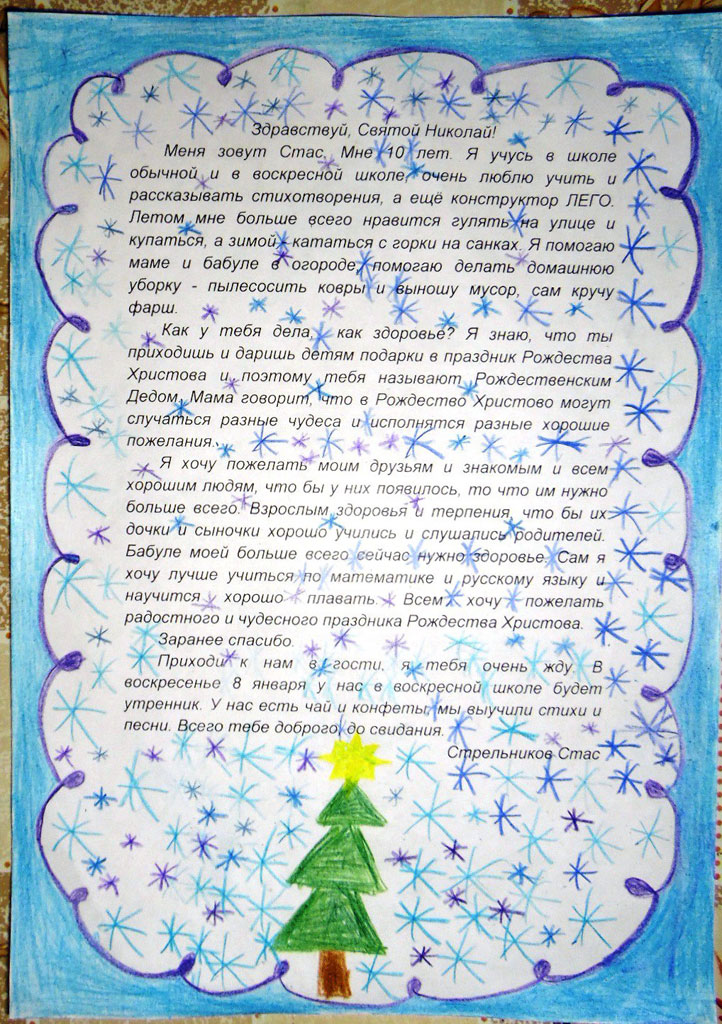 Здравствуй, Святой Николай!
Меня зовут Стас. Мне 10 лет. Я учусь в школе
обычной и в воскресной школе, очень люблю учить и
рассказывать стихотворения, а ещё конструктор ЛЕГО.
Летом мне больше всего нравится гулять на улице и
купаться, а зимой - кататься с горки на санках. Я помогаю
маме и бабуле в огороде, помогаю делать домашнюю
уборку - пылесосить ковры и выношу мусор, сам кручу
фарш.
Как у тебя дела, как здоровье? Я знаю, что ты
приходишь и даришь детям подарки в праздник Рождества
Христова и поэтому тебя называют Рождественским
Дедом. Мама говорит, что в Рождество Христово могут
случаться разные чудеса и исполнятся разные хорошие
пожелания.
Я хочу пожелать моим друзьям и знакомым и всем
хорошим людям, что бы у них появилось, то что им нужно
больше всего. Взрослым здоровья и терпения, что бы их
дочки и сыночки хорошо учились и слушались родителей.
Бабуле моей больше всего сейчас нужно здоровье. Сам я
хочу лучше учиться по математике и русскому языку и
научится хорошо плавать. Всем хочу пожелать
радостного и чудесного праздника Рождества Христова.
Заранее спасибо.
Приходи к нам в гости, я тебя очень жду. В
воскресенье 8 января у нас в воскресной школе будет
утренник. У нас есть чай и конфеты, мы выучили стихи и
песни. Всего тебе доброго, до свидания.
Стрельников Стас